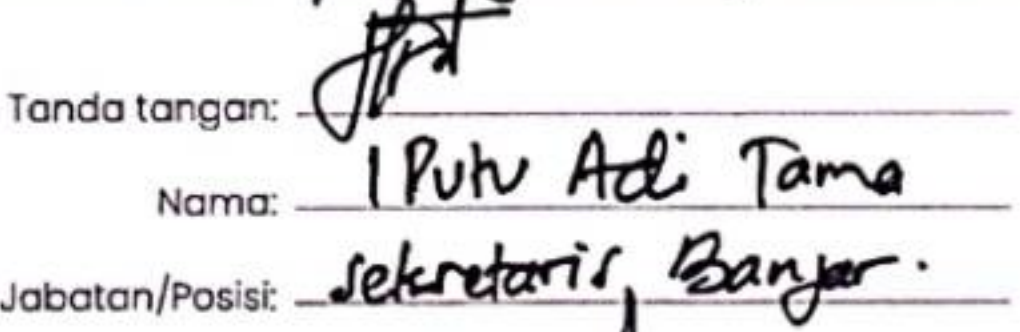 Tanda tangan:
Nama: I Putu Adi Tama
Jabatan/Posisi: sekretaris, Banjar.